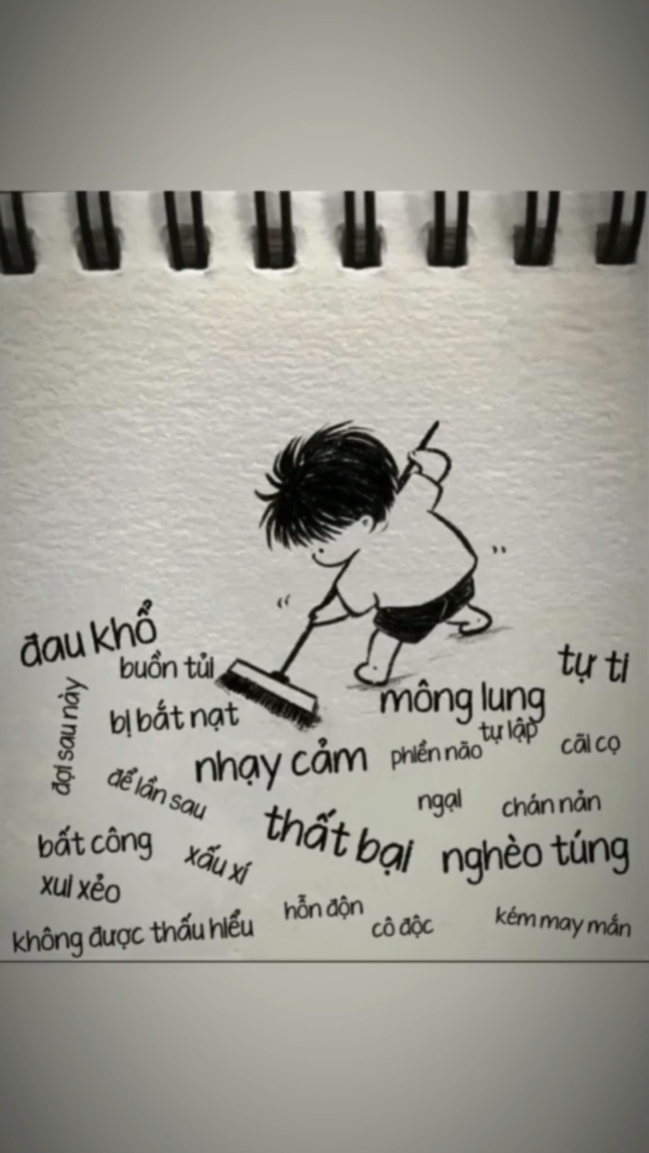 đau khổ
buồn tủi
tự ti
đợi sau này
bị bắt nạt
mông lung
nhạy cảm
phiền não
tự lập
cãi cọ
để lần sau
ngại
chán nản
thất bại
bất công
xấu xí
nghèo túng
xui xẻo
hỗn độn
cô độc
kém may mắn
không được thấu hiểu